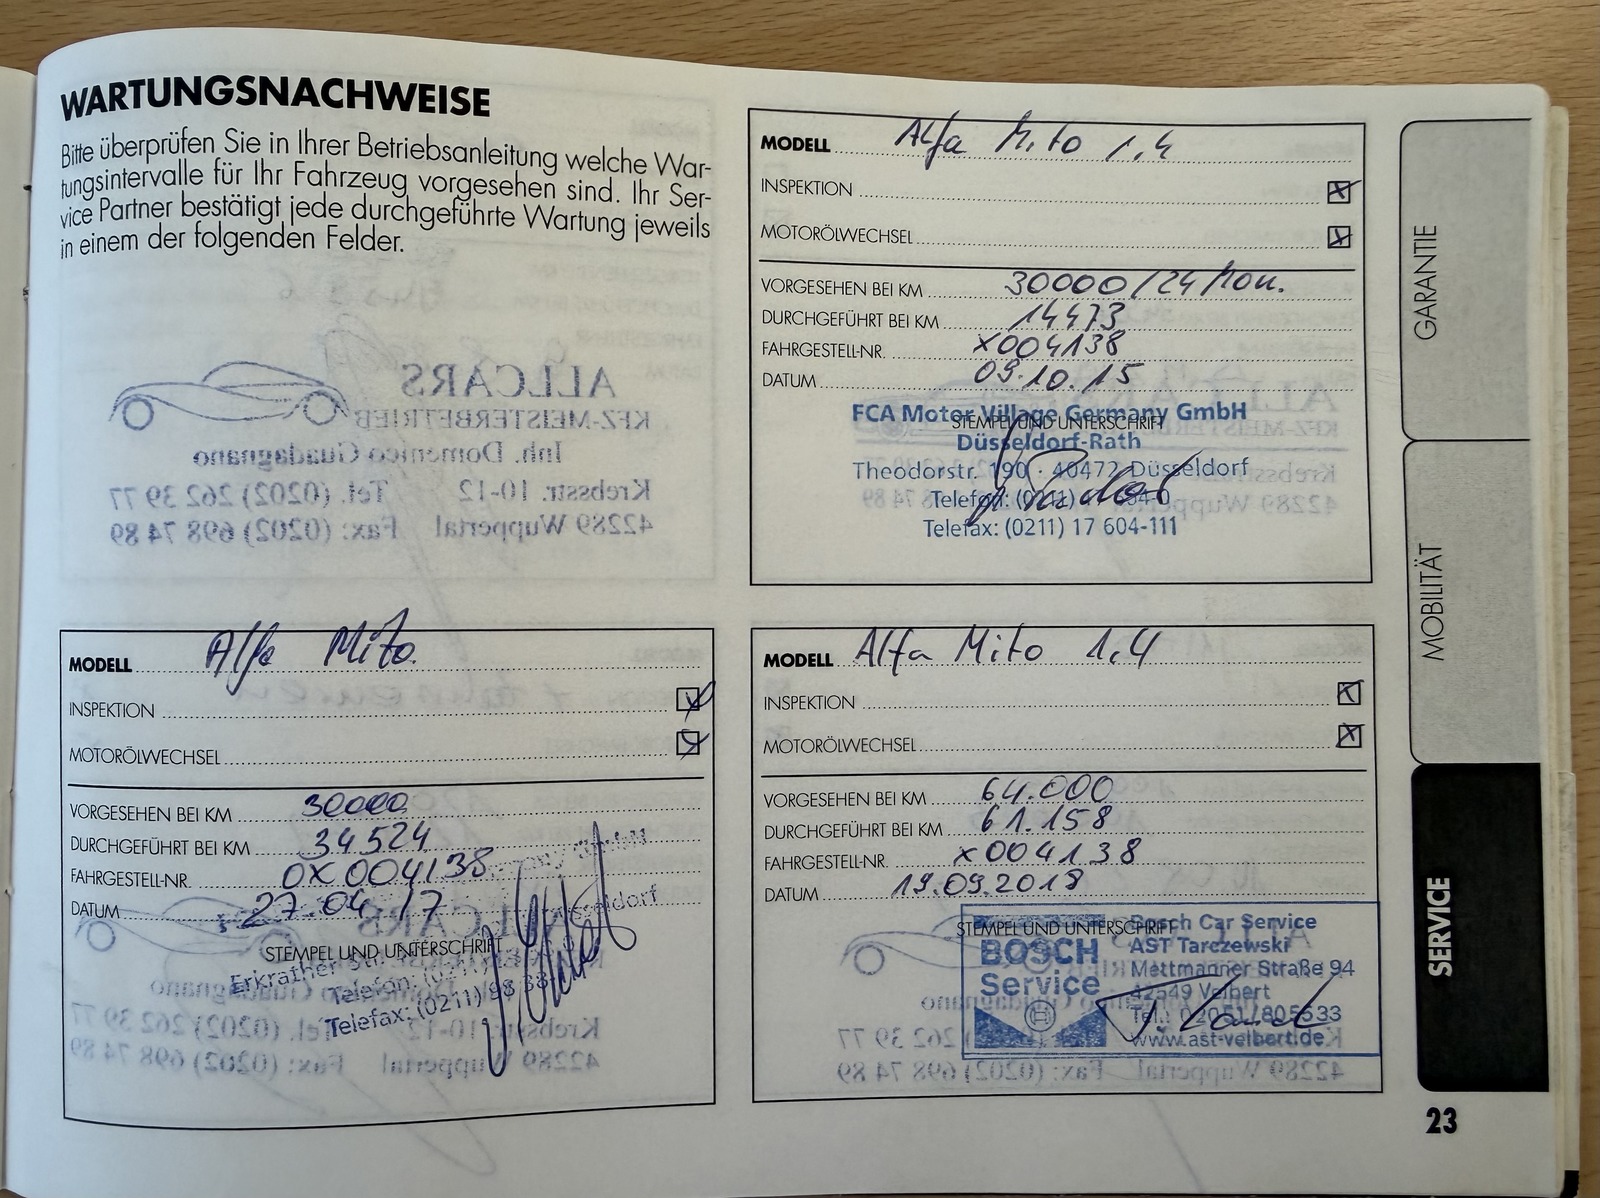 WARTUNGSNACHWEISE
Bitte überprüfen Sie in Ihrer Betriebsanleitung welche War-
tungsintervalle für Ihr Fahrzeug vorgesehen sind. Ihr Ser-
vice Partner bestätigt jede durchgeführte Wartung jeweils
in einem der folgenden Felder.
MODELL Alfa Mito 1,4
INSPEKTION
MOTORÖLWECHSEL
VORGESEHEN BEI KM 30000/24 Mon.
DURCHGEFÜHRT BEI KM 14473
FAHRGESTELL-NR. X004138
DATUM 09.10.15
FCA Motor Village Germany GmbH
STEMPEL UND UNTERSCHRIFT
Düsseldorf-Rath
Theodorstr. 190 · 40472 Düsseldorf
Telefon: (0211)
Telefax: (0211) 17 604-111
MODELL Alfa Mito
INSPEKTION
MOTORÖLWECHSEL
VORGESEHEN BEI KM 30000
DURCHGEFÜHRT BEI KM 34524
FAHRGESTELL-NR. 0X004138
DATUM 27.04.17
STEMPEL UND UNTERSCHRIFT
Erkrather
Telefon: (0211)
Telefax: (0211) 98
MODELL Alfa Mito 1,4
INSPEKTION
MOTORÖLWECHSEL
VORGESEHEN BEI KM 64.000
DURCHGEFÜHRT BEI KM 61.158
FAHRGESTELL-NR. X004138
DATUM 19.09.2018
STEMPEL UND UNTERSCHRIFT
BOSCH
Service
Bosch Car Service
AST Tarezewski
Mettmanner Straße 94
42549 Velbert
Tel.: 02051/805533
www.ast-velbert.de
GARANTIE
MOBILITÄT
SERVICE
23
ALLCARS
KFZ-MEISTERBETRIEB
Inh. Domenico Guadagnano
Krebsstr. 10-12 Tel. (0202) 262 39 77
42289 Wuppertal Fax: (0202) 698 74 89